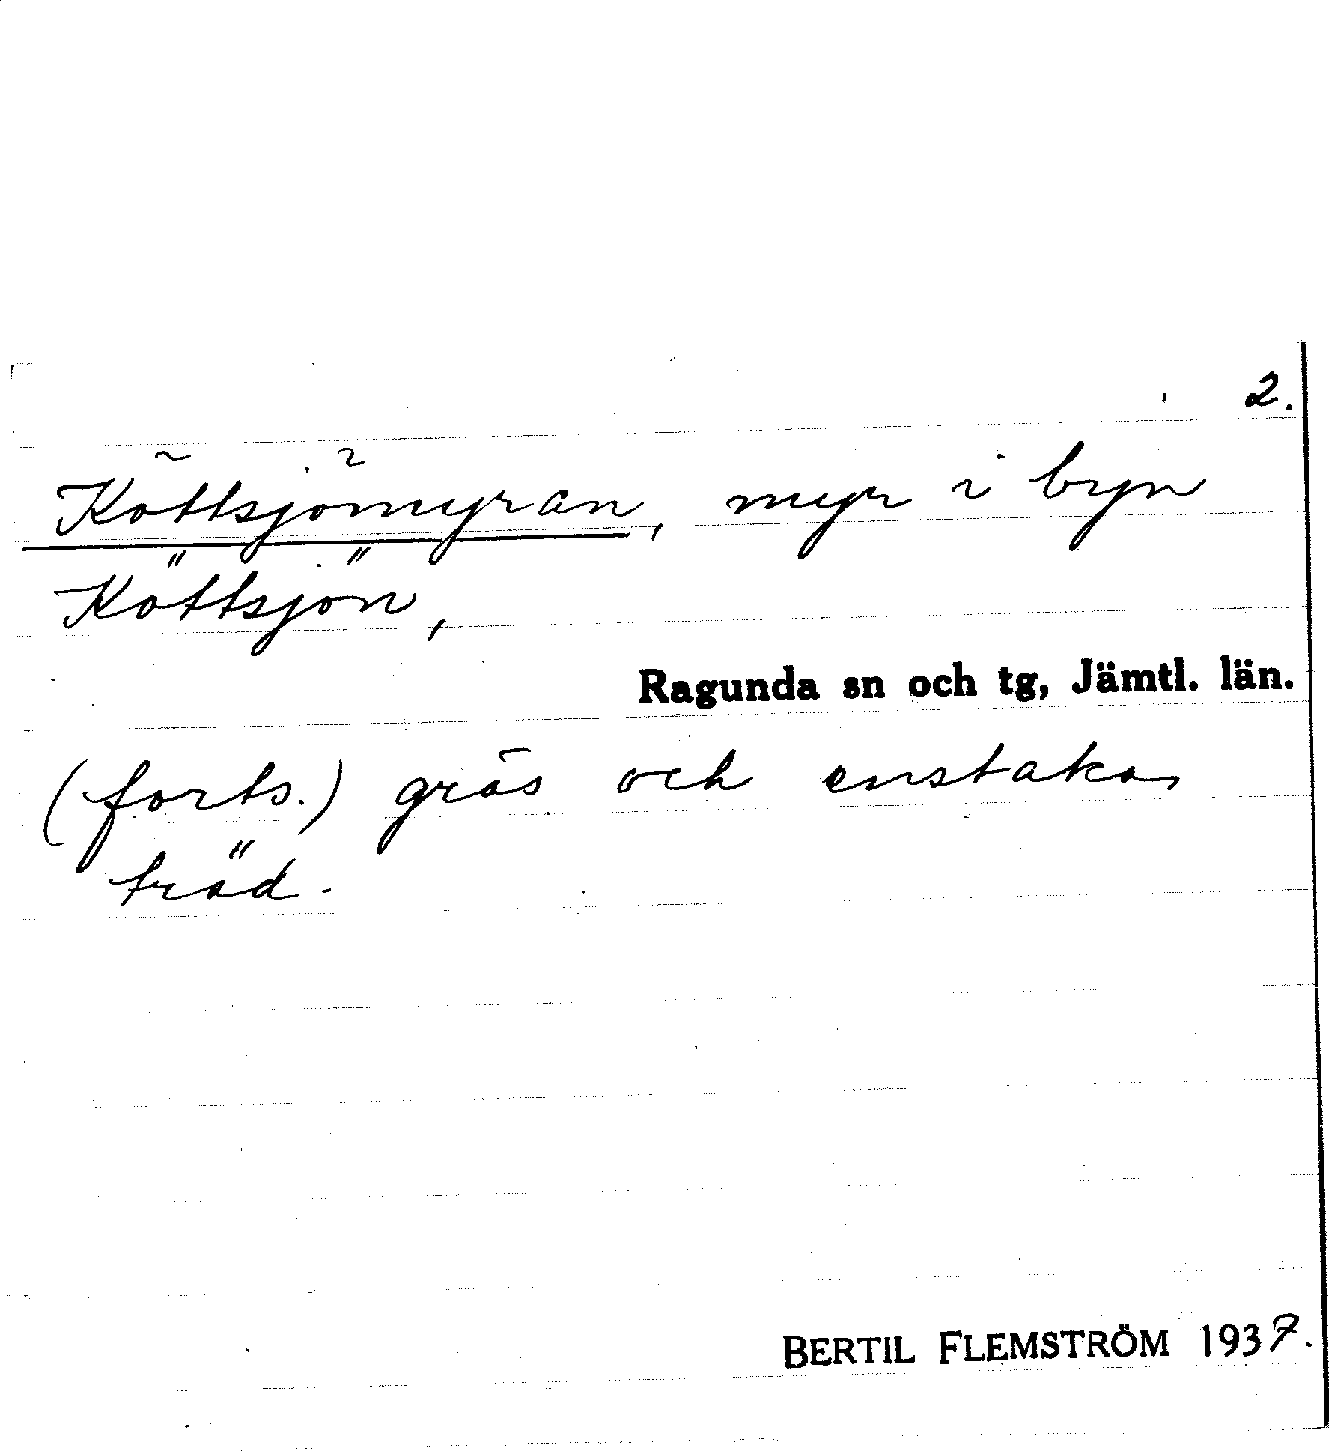 2.
Köttsjömyran, myr i byn
Köttsjön,
Ragunda sn och tg, Jämtl. län.
(forts.) gräs och enstaka
träd.
BERTIL FLEMSTRÖM 1937.